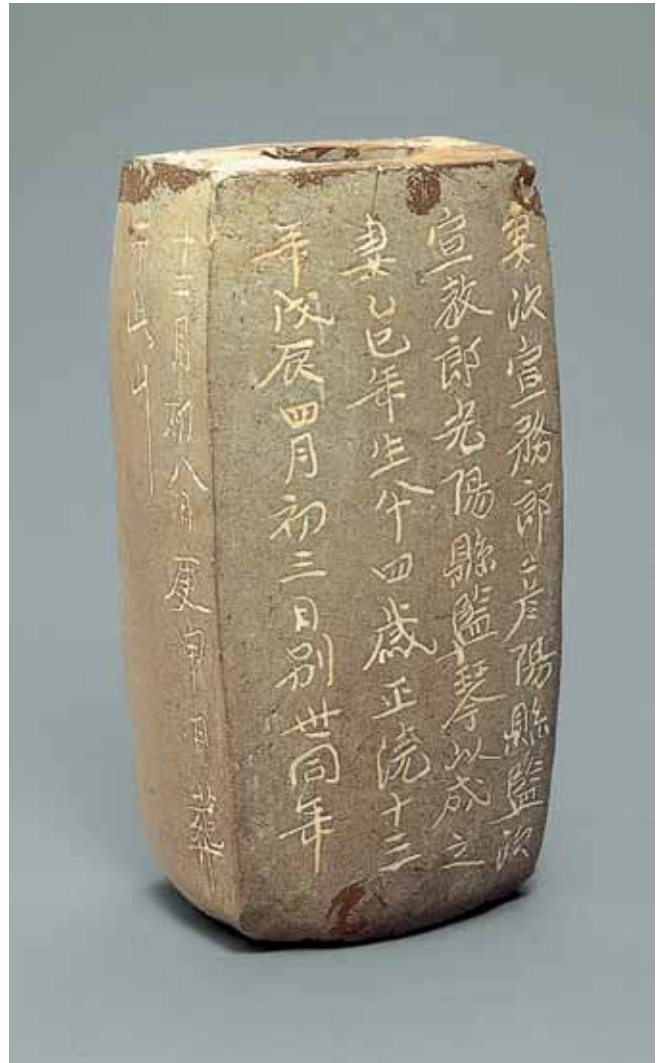 次宣務郎彦陽縣監次
宣敎郎光陽縣監琴以成之
妻乙巳年生廿四歲正統十三
年戊辰四月初三日別世同年
十二月初八日庚申日葬